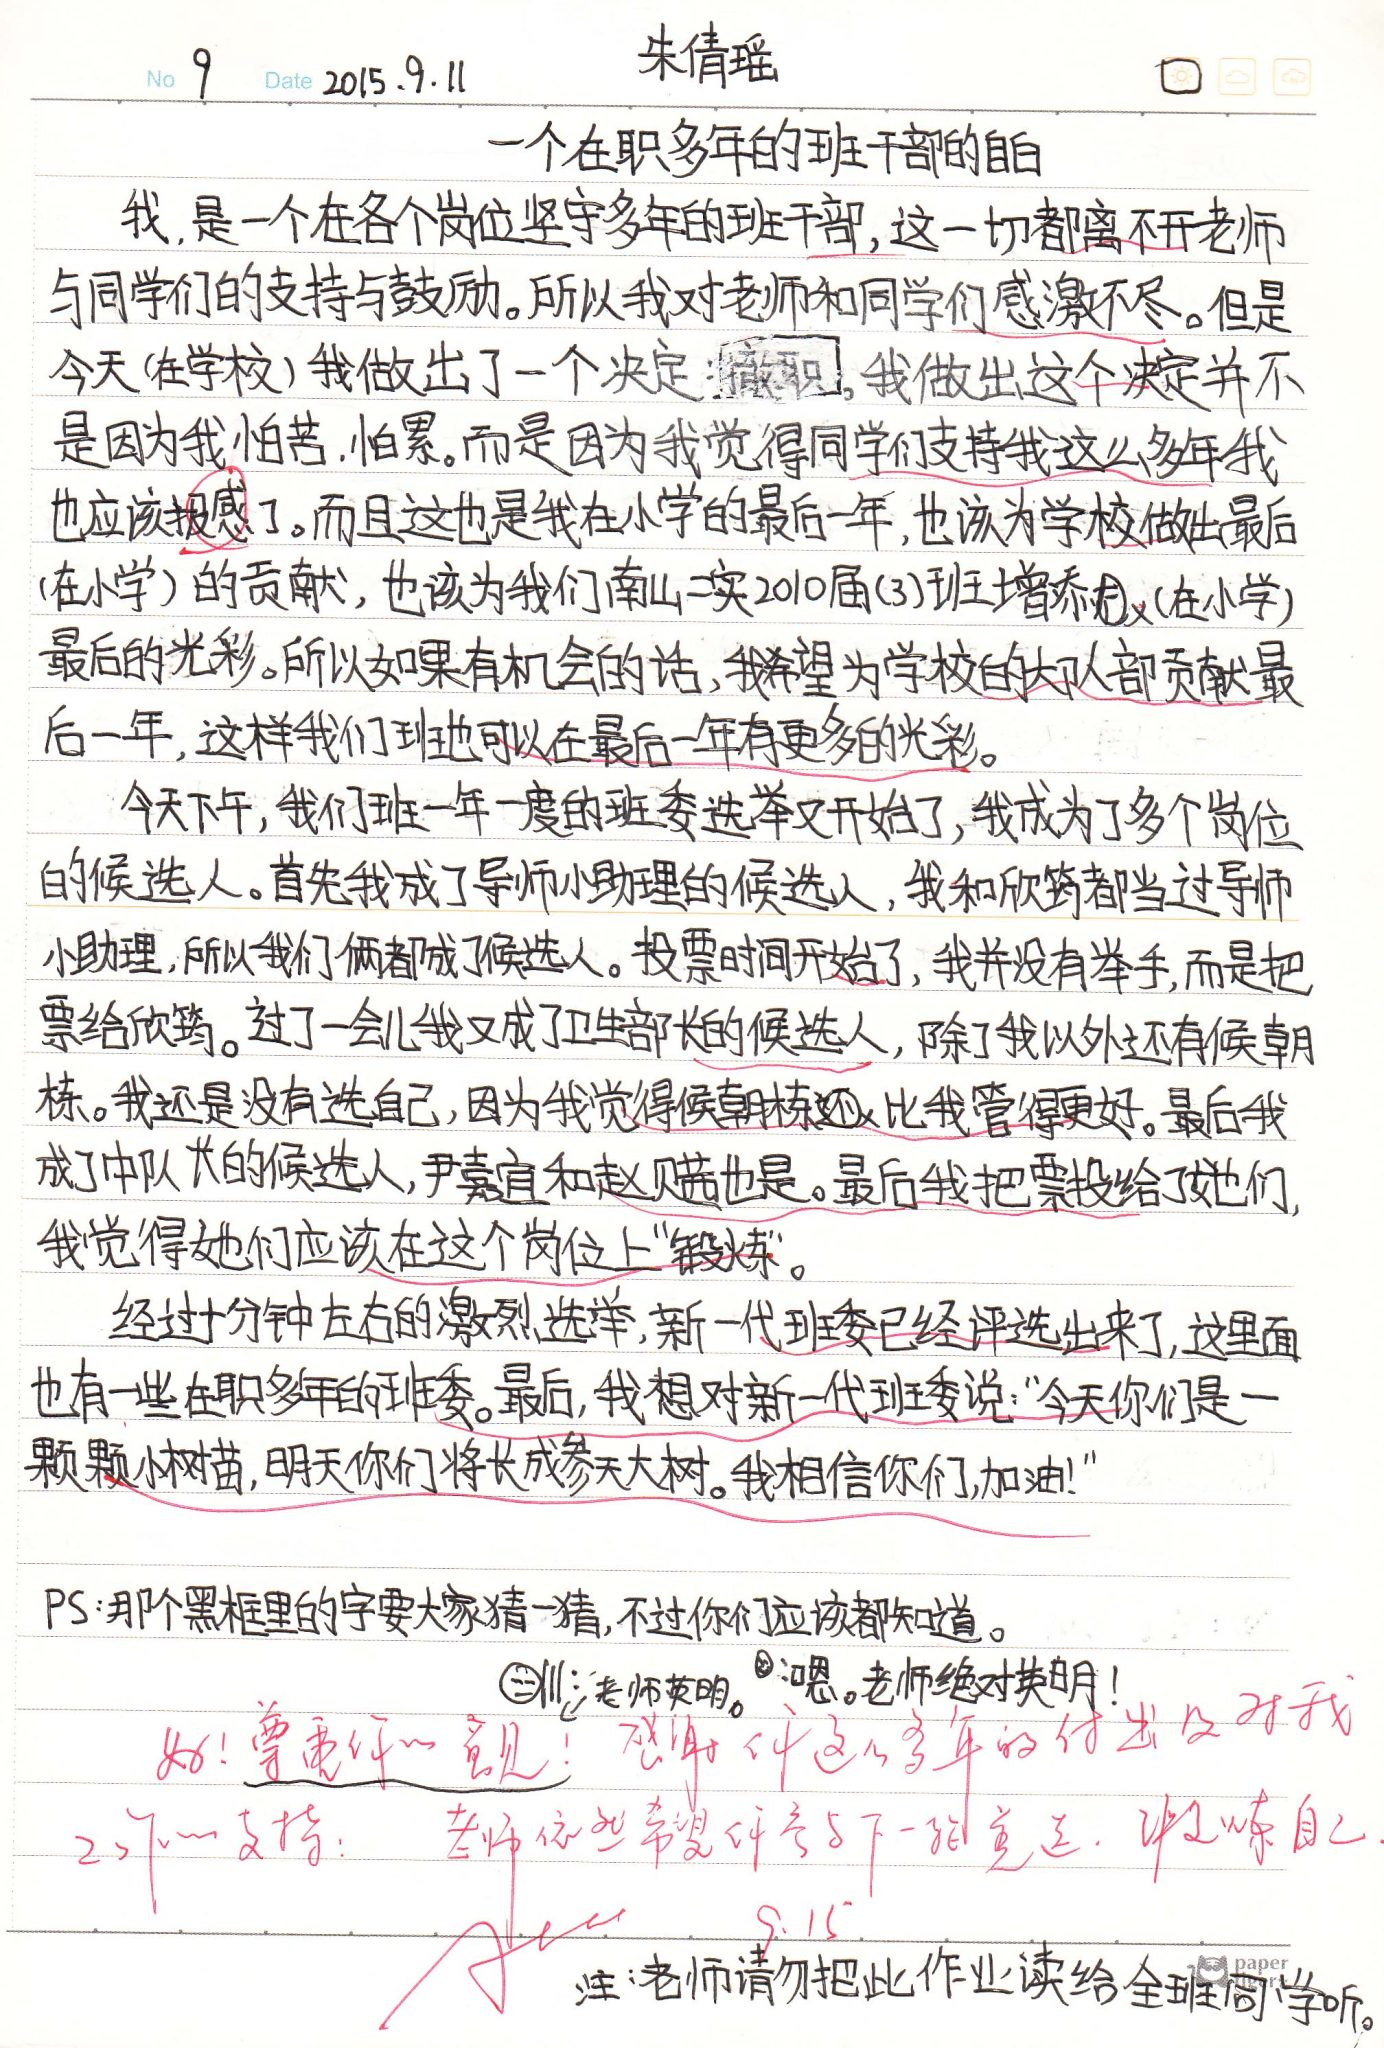 朱倩瑶
No 9 Date 2015.9.11
一个在职多年的班干部的自白
我,是一个在各个岗位坚守多年的班干部,这一切都离不开老师
与同学们的支持与鼓励。所以我对老师和同学们感激不尽。但是
今天(在学校)我做出了一个决定:撤职。我做出这个决定并不
是因为我怕苦、怕累。而是因为我觉得同学们支持我这么多年我
也应该报感了。而且这也是我在小学的最后一年,也该为学校做出最后
(在小学)的贡献,也该为我们南山二实2010届(3)班增添(在小学)
最后的光彩。所以如果有机会的话,我希望为学校的大队部贡献最
后一年,这样我们班也可以在最后一年有更多的光彩。
今天下午,我们班一年一度的班委选举又开始了,我成为了多个岗位
的候选人。首先我成了导师小助理的候选人,我和欣筠都当过导师
小助理,所以我们俩都成了候选人。投票时间开始了,我并没有举手,而是把
票给欣筠。过了一会儿我又成了卫生部长的候选人,除了我以外还有候朝
栋。我还是没有选自己,因为我觉得候朝栋还比我管得更好。最后我
成了中队长的候选人,尹嘉宜和赵贝茜也是。最后我把票投给了她们,
我觉得她们应该在这个岗位上“锻炼”。
经过十分钟左右的激烈选举,新一代班委已经评选出来了,这里面
也有一些在职多年的班委。最后,我想对新一代班委说:“今天你们是一
颗颗小树苗,明天你们将长成参天大树。我相信你们,加油!”
PS:那个黑框里的字要大家猜一猜,不过你们应该都知道。
老师英明。 :嗯。老师绝对英明!
好!尊重你的意见!感谢你这么多年的付出及对我
工作的支持! 老师依然希望你参与下一轮竞选,锻炼自己.
9.15
注:老师请勿把此作业读给全班同学听。
paper